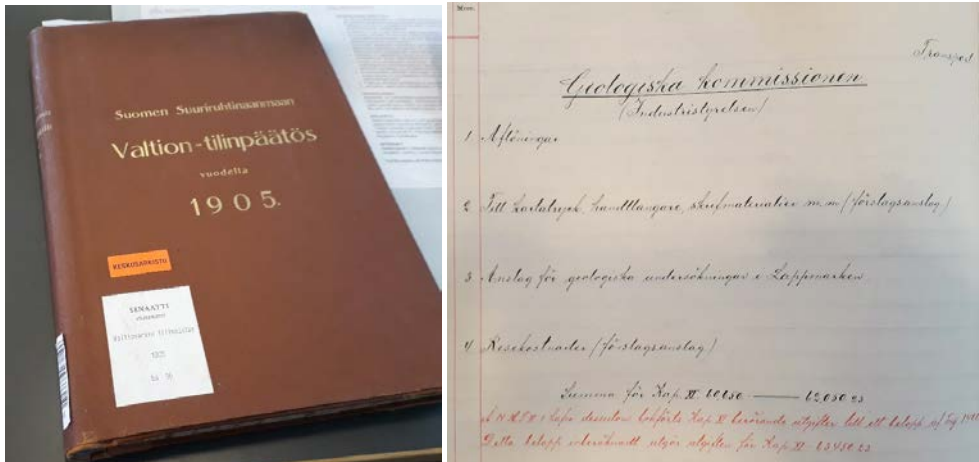 Suomen Suuriruhtinaanmaan
Valtion-tilinpäätös
vuodelta
1905.
KESKUSARKISTO
SENAATTI
1905
Mom.
Transport
Geologiska kommissionen
(Industristyrelsen)
1 Aflöningar
2 Till kartatryck, handtlangare, skrifmaterialier m.m. (förslagsanslag)
3 Anslag för geologiska undersökningar i Lappmarken
4 Resekostnader (förslagsanslag)
Summa för Kap. XI. 60,650 — 62,050 23
utgifter till ett belopp af
Detta belopp inberäknadt utgör utgiften för Kap. XI. 63450.23